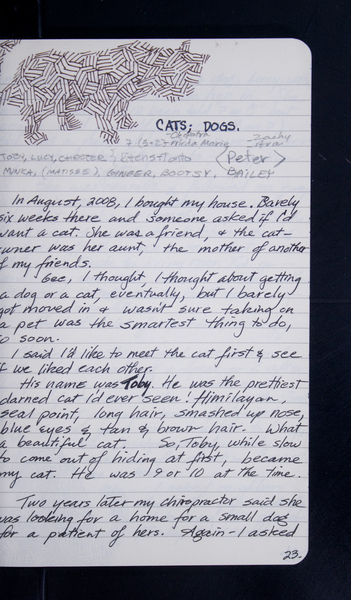 CATS; DOGS.
TOBY, LUCY, CHESTER,
MIMCA, (MATISSE), GINGER, BOOTSY,
Peter
BAILEY
In August, 2008, I bought my house. Barely
six weeks there and someone asked if I'd
want a cat. She was a friend, & the cat-
owner was her aunt, the mother of another
of my friends.
Gee, I thought, I thought about getting
a dog or a cat, eventually, but I barely
got moved in & wasn't sure taking on
a pet was the smartest thing to do,
so soon.
I said I'd like to meet the cat first & see
if we liked each other.
His name was Toby. He was the prettiest
darned cat I'd ever seen! Himilayan,
seal point, long hair, smashed up nose,
blue eyes & tan & brown hair. What
a beautiful cat. So, Toby, while slow
to come out of hiding at first, became
my cat. He was 9 or 10 at the time.
Two years later my chiropractor said she
was looking for a home for a small dog
for a patient of hers. Again - I asked
23.